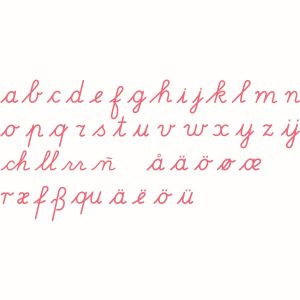 a b c d e f g h i j k l m n
o p q r s t u v w x y z ij
ch ll rr ñ å ä ö ø æ
r æ f ß qu ä ë ö ü